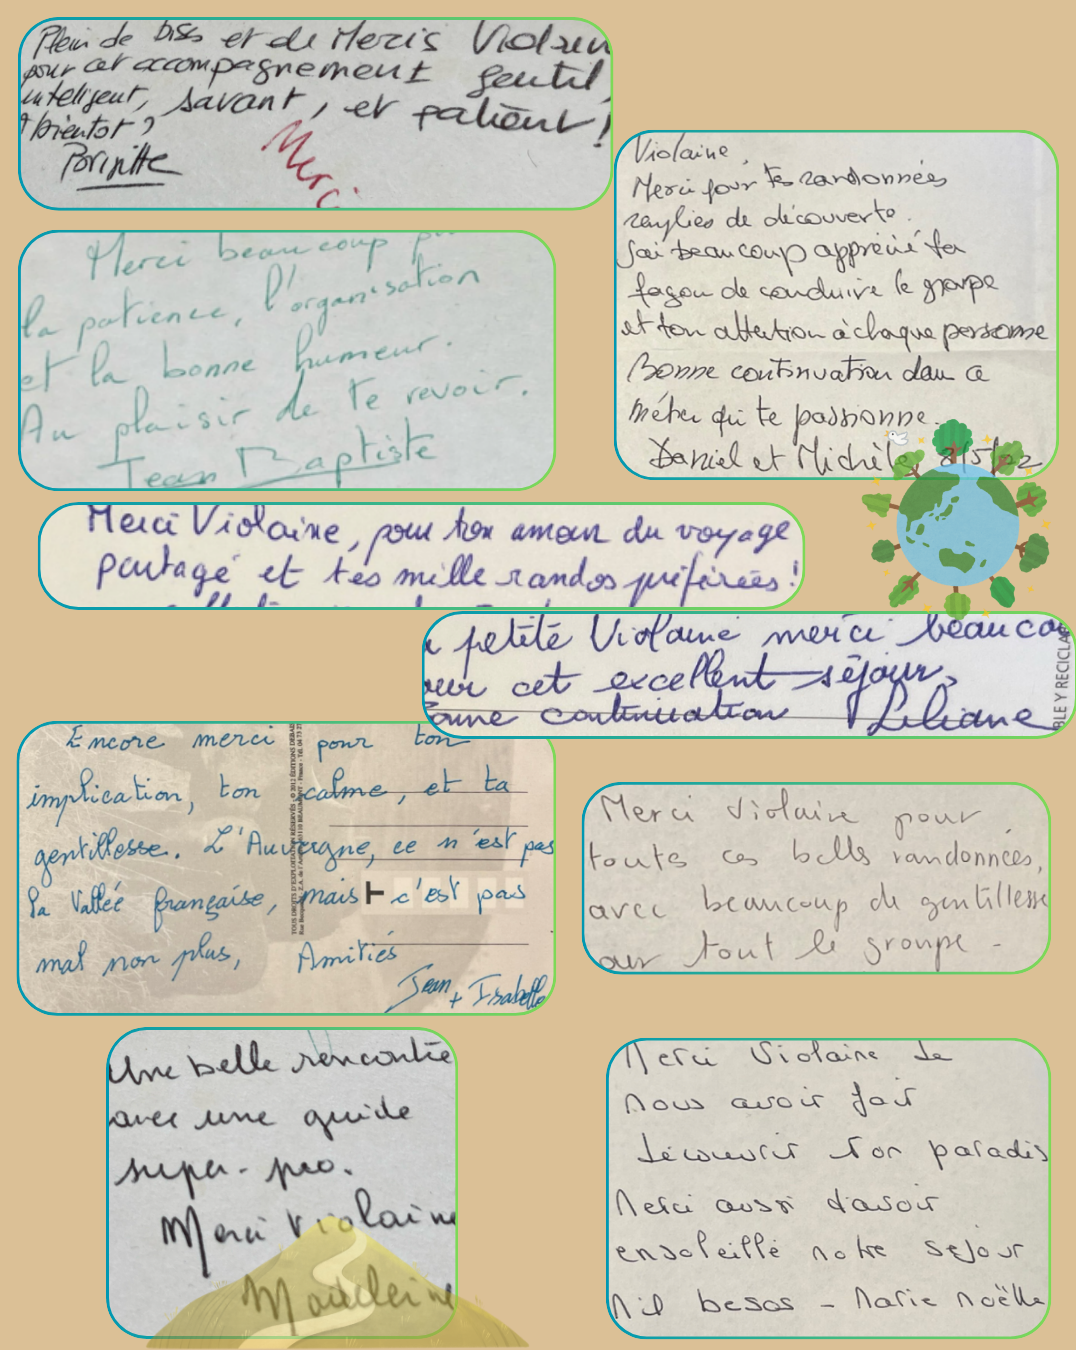 Plein de biss et de Mercis Violaine
pour cet accompagnement gentil,
inteligent, savant, et patient !
A bientot ?
Brigitte
Merci
Violaine,
Merci pour tes randonnées
remplies de découverte.
J'ai beaucoup apprécié ta
façon de conduire le groupe
et ton attention à chaque personne
Bonne continuation dans ce
métier qui te passionne.
Daniel et Michèle 8/5/22
Merci beaucoup
la patience, l'organisation
et la bonne humeur.
Au plaisir de te revoir.
Jean Baptiste
Merci Violaine, pour ton amour du voyage
partagé et tes mille randos préférées !
petite Violaine merci beaucou
our cet excellent séjour,
onne continuation Liliane
BLE Y RECICLA
Encore merci pour ton
implication, ton calme, et ta
gentillesse. L'Auvergne, ce n'est pas
la Vallée française, mais c'est pas
mal non plus, Amitiés
Jean + Isabelle
Merci Violaine pour
toutes ces belles randonnées,
avec beaucoup de gentillesse
our tout le groupe -
Une belle rencontre
avec une guide
super-pro.
Merci Violaine
Madeleine
Merci Violaine de
nous avoir fait
découvrir ton paradis
Merci aussi d'avoir
ensoleillé notre séjour
Mil besos - Marie Noëlle